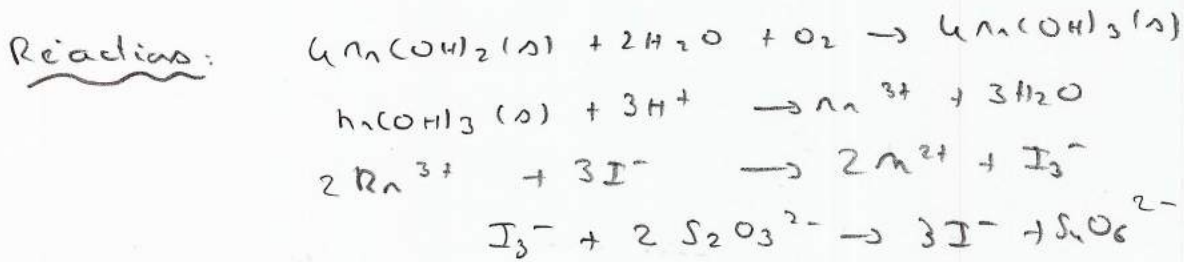 Réactions : 4 Mn(OH)₂ (s) + 2H₂O + O₂ → 4 Mn(OH)₃ (s)
Mn(OH)₃ (s) + 3H⁺ → Mn³⁺ + 3H₂O
2 Mn³⁺ + 3I⁻ → 2 Mn²⁺ + I₃⁻
I₃⁻ + 2 S₂O₃²⁻ → 3I⁻ + S₄O₆²⁻